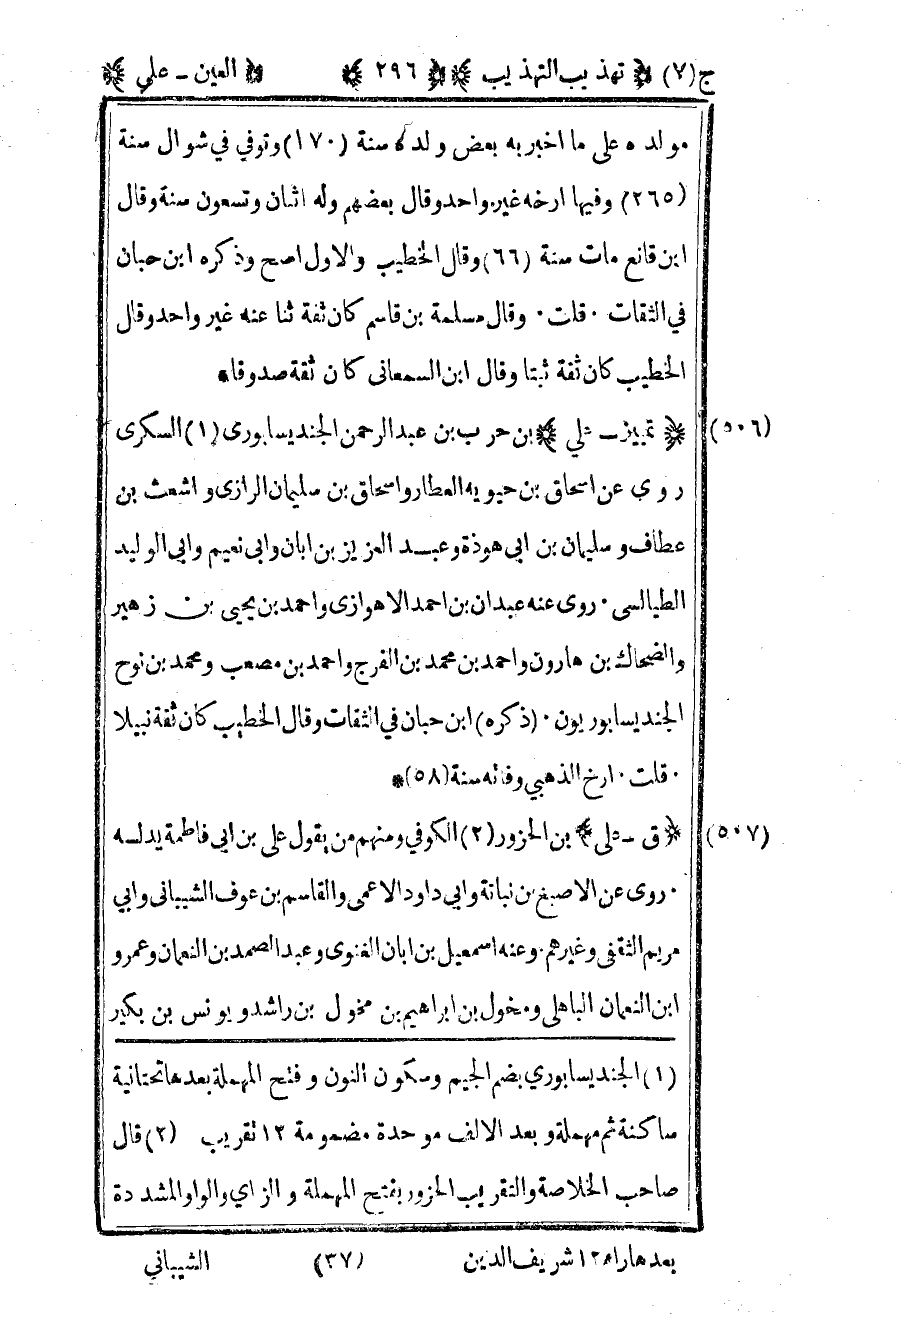 ج(٧) ﴿ تهذيب التهذيب ﴾ ﴿ ٢٩٦ ﴾ ﴿ العين ـ علي ﴾
مولده على ما اخبر به بعض ولده سنة (١٧٠) وتوفي في شوال سنة
(٢٦٥) وفيها ارخه غير واحد وقال بعضهم وله اثنان وتسعون سنة وقال
ابن قانع مات سنة (٦٦) وقال الخطيب والاول اصح وذكره ابن حبان
في الثقات ٠ قلت ٠ وقال مسلمة بن قاسم كان ثقة ثنا عنه غير واحد وقال
الخطيب كان ثقة ثبتا وقال ابن السمعانى كان ثقة صدوقا *
(٥٠٦) ﴿ تمييز ـ علي ﴾ بن حرب بن عبد الرحمن الجنديسابورى (١) السكرى
روى عن اسحاق بن حيويه العطار واسحاق بن سليمان الرازى واشعث بن
عطاف وسليمان بن ابى هوذة وعبد العزيز بن ابان وابى نعيم وابى الوليد
الطيالسى ٠ روى عنه عبدان بن احمد الاهوازى واحمد بن يحيى بن زهير
والضحاك بن هارون واحمد بن محمد بن الفرج واحمد بن مصعب ومحمد بن نوح
الجنديسابوريون ٠ (ذكره) ابن حبان في الثقات وقال الخطيب كان ثقة نبيلا
٠ قلت ٠ ارخ الذهبي وفاته سنة (٥٨) *
(٥٠٧) ﴿ ق ـ علي ﴾ بن الحزور (٢) الكوفي ومنهم من يقول على بن ابى فاطمة يدلسه
٠ روى عن الاصبغ بن نباتة وابي داود الاعمى والقاسم بن عوف الشيبانى وابي
مريم الثقفى وغيرهم ٠ وعنه اسمعيل بن ابان الغنوى وعبد الصمد بن النعمان وعمرو
ابن النعمان الباهلى ومخول بن ابراهيم بن مخول بن راشد ويونس بن بكير
(١) الجنديسابوري بضم الجيم وسكون النون وفتح المهملة بعدها تحتانية
ساكنة ثم مهملة وبعد الالف موحدة مضمومة ١٢ تقريب (٢) قال
صاحب الخلاصة والتقريب الحزور بفتح المهملة والزاي والواو المشددة
بعدها راء ١٢ شريف الدين (٣٧) الشيباني